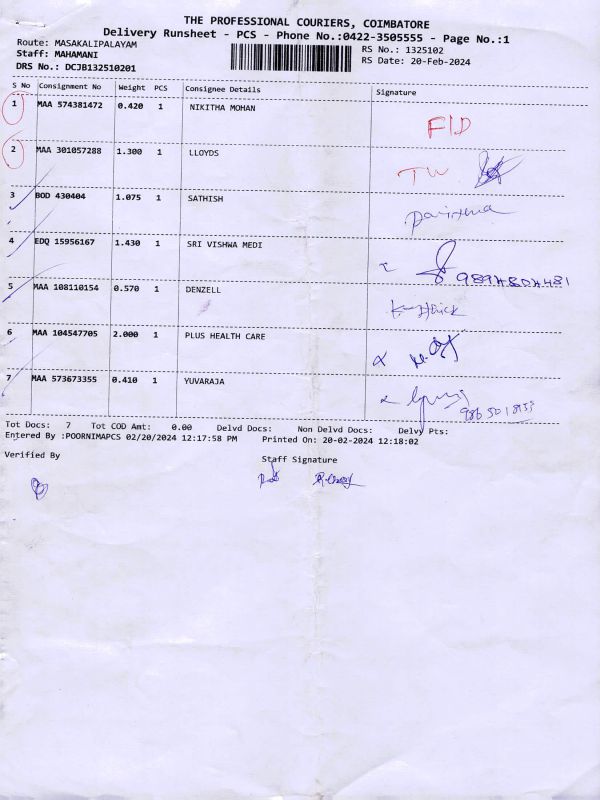 THE PROFESSIONAL COURIERS, COIMBATORE
Delivery Runsheet - PCS - Phone No.:0422-3505555 - Page No.:1
Route: MASAKALIPALAYAM
RS No.: 1325102
Staff: MAHAMANI
RS Date: 20-Feb-2024
DRS No.: DCJB132510201
S No Consignment No Weight PCS Consignee Details Signature
1 MAA 574381472 0.420 1 NIKITHA MOHAN
FID
2 MAA 301057288 1.300 1 LLOYDS
TW
3 BOD 430404 1.075 1 SATHISH
4 EDQ 15956167 1.430 1 SRI VISHWA MEDI
5 MAA 108110154 0.570 1 DENZELL
6 MAA 104547705 2.000 1 PLUS HEALTH CARE
7 MAA 573673355 0.410 1 YUVARAJA
Tot Docs: 7 Tot COD Amt: 0.00 Delvd Docs: Non Delvd Docs: Delvy Pts:
Entered By :POORNIMAPCS 02/20/2024 12:17:58 PM Printed On: 20-02-2024 12:18:02
Verified By Staff Signature